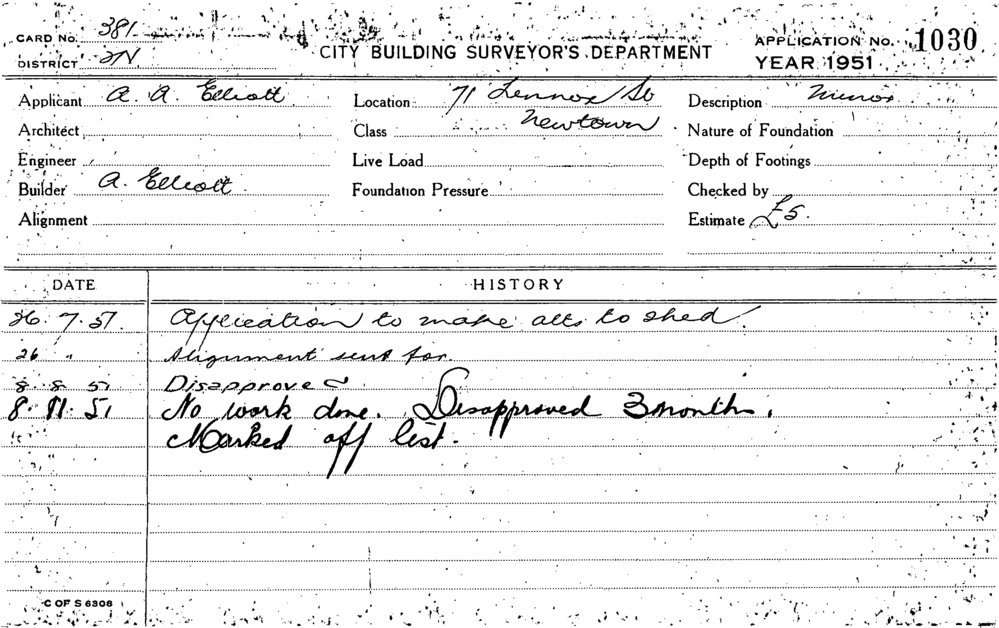 CARD No. 381
DISTRICT 2N
CITY BUILDING SURVEYOR'S DEPARTMENT
APPLICATION No. 1030
YEAR 1951
Applicant A. A. Elliott
Location 71 Lennox St
Newtown
Description Minor
Architect
Class
Nature of Foundation
Engineer
Live Load
Depth of Footings
Builder A. Elliott
Foundation Pressure
Checked by
Alignment
Estimate £5.
DATE HISTORY
26. 7. 51. Application to make alts to shed.
26 " Alignment sent for.
8. 8. 51 Disapproved
8. 11. 51 No work done. Disapproved 3 months.
Marked off list.
C OF S 6306